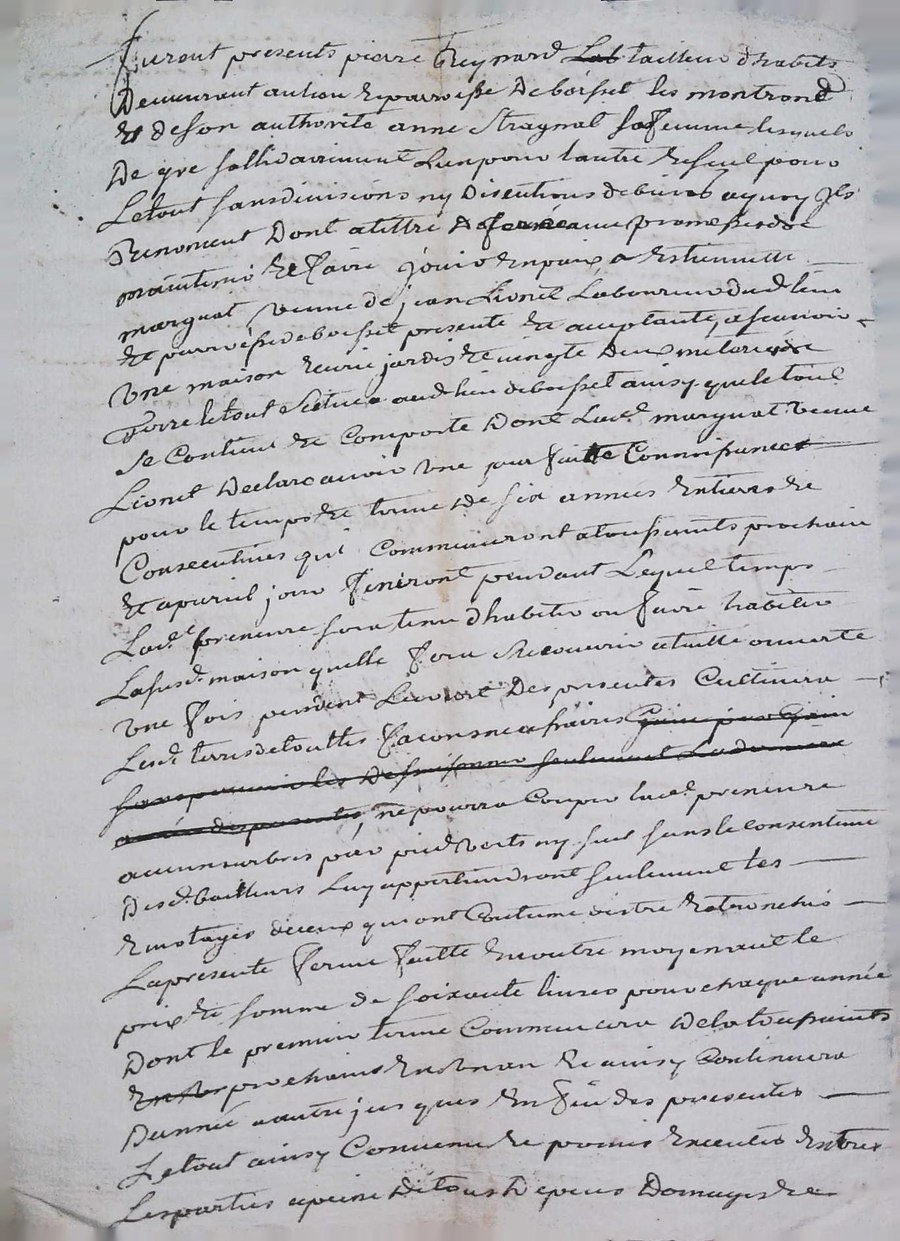 furent presents pierre Reynard Lab tailleur d'habits
Demeurant au lieu et parroisse De boisset les montrond
Et de son authorité anne Stragnat sa femme lesquels
De gre sollidairement L'un pour l'autre et seul pour
Le tout sans divisions ny Discutions de biens ayquoy Jls
Renoncent Dont a tittre De ferme avec promesses de
maintenir et faire jouir en paix a Estiennette
marguat veuve de jean Lionet Laboureur dud. lieu
et parroisse de boisset presente et acceptante, a scavoir
Une maison ecurie jardis et vingte Deux meterées de
Terre le tout scitué aud. lieu de boisset ainsy que le tout
se Contient et Comporte Dont Lad. marguat veuve
Lionet Declare avoir une parfaitte Connoissance
pour le temps et terme De six années Entieres et
Consecutives qui Commenceront a toussaints prochain
et a pareil jour finiront pendant Lequel temps
Lad. preneure sera tenue d'habiter ou faire habiter
La susd. maison quelle fera recouvrir a tuille ouverte
une fois pendant Le cours Des presentes Cultivera
Lesd. terres de touttes facons necessaires
ne pourra Couper lad. preneure
aucun arbres par pied verts ny secs sans le consentement
Desd. bailleurs Luy appartiendront seulement les
Emotages de ceux qui ont Coutume destre Retronchés
La presente ferme faitte en outre moyennant le
prix et somme de soixante livres pour chaque année
Dont le premier terme Commencera De la toussaints
prochains En un an et ainsy Continuera
D'année a autre jusques En fin des presentes
Le tout ainsy Convenu et promis Executer Entre
Les parties a peine De tous Depens Domages et